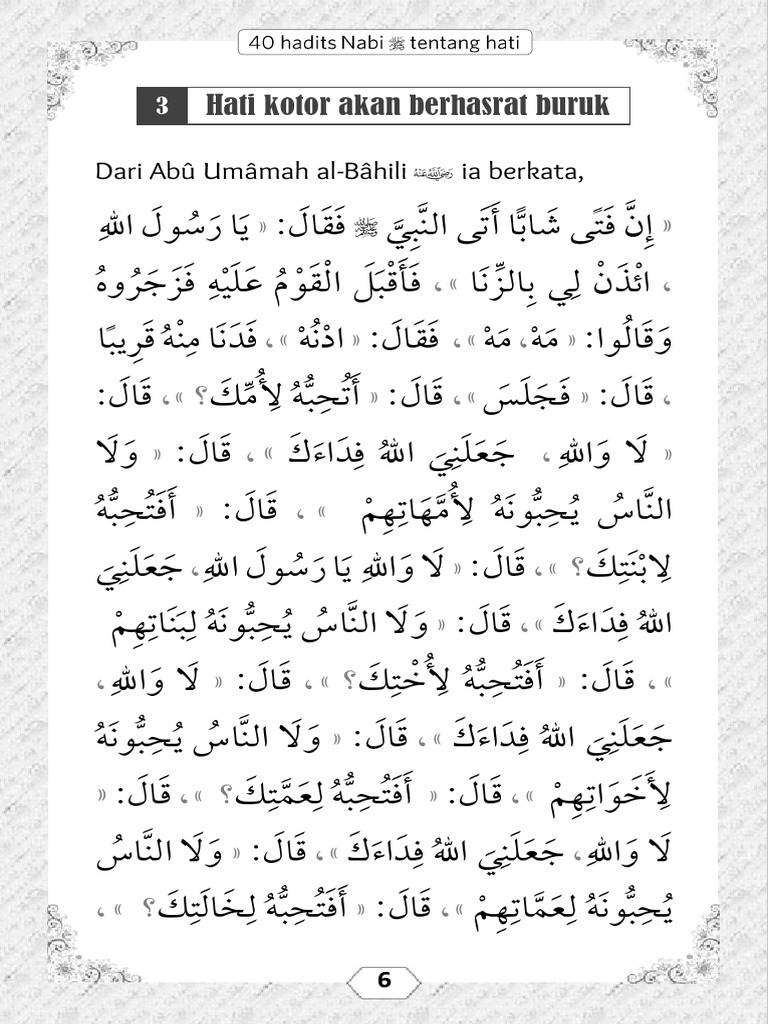 40 hadits Nabi ﷺ tentang hati
3 Hati kotor akan berhasrat buruk
Dari Abû Umâmah al-Bâhili رضي الله عنه ia berkata,
« إِنَّ فَتًى شَابًّا أَتَى النَّبِيَّ ﷺ فَقَالَ: « يَا رَسُولَ اللهِ
، ائْذَنْ لِي بِالزِّنَا »، فَأَقْبَلَ الْقَوْمُ عَلَيْهِ فَزَجَرُوهُ
وَقَالُوا: « مَهْ، مَهْ »، فَقَالَ: « ادْنُهْ »، فَدَنَا مِنْهُ قَرِيبًا
، قَالَ: « فَجَلَسَ »، قَالَ: « أَتُحِبُّهُ لِأُمِّكَ؟ »، قَالَ:
« لَا وَاللهِ، جَعَلَنِيَ اللهُ فِدَاءَكَ »، قَالَ: « وَلَا
النَّاسُ يُحِبُّونَهُ لِأُمَّهَاتِهِمْ »، قَالَ: « أَفَتُحِبُّهُ
لِابْنَتِكَ؟ »، قَالَ: « لَا وَاللهِ يَا رَسُولَ اللهِ، جَعَلَنِيَ
اللهُ فِدَاءَكَ »، قَالَ: « وَلَا النَّاسُ يُحِبُّونَهُ لِبَنَاتِهِمْ
»، قَالَ: « أَفَتُحِبُّهُ لِأُخْتِكَ؟ »، قَالَ: « لَا وَاللهِ،
جَعَلَنِيَ اللهُ فِدَاءَكَ »، قَالَ: « وَلَا النَّاسُ يُحِبُّونَهُ
لِأَخَوَاتِهِمْ »، قَالَ: « أَفَتُحِبُّهُ لِعَمَّتِكَ؟ »، قَالَ: «
لَا وَاللهِ، جَعَلَنِيَ اللهُ فِدَاءَكَ »، قَالَ: « وَلَا النَّاسُ
يُحِبُّونَهُ لِعَمَّاتِهِمْ »، قَالَ: « أَفَتُحِبُّهُ لِخَالَتِكَ؟ »،
6